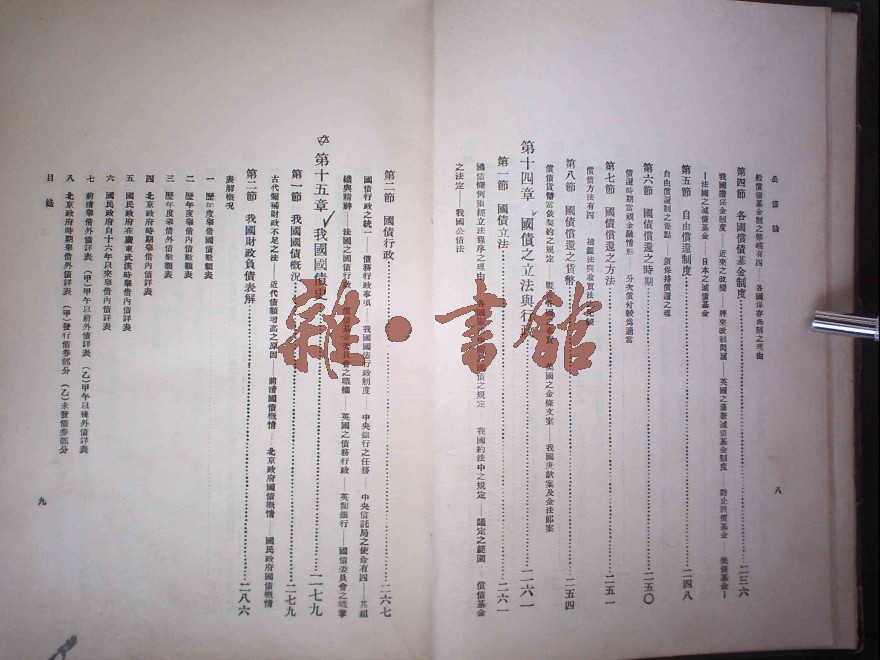 公債論
八
設償債基金制之弊端有四——各國保存此制之理由
第四節 各國償債基金制度……二三六
我國擔保金制度——近來之改變——將來改制問題——英國之舊新減債基金制度——
——法國之減債基金——日本之減債基金
第五節 自由償還制度……二四八
自由償還制之優點 須保持償還之權
第六節 國債償還之時期……二五〇
償還時期當視金融情形 分次償付較爲適當
第七節 國債償還之方法……二五一
償債方法有四 抽籤法與收買法
第八節 國債償還之貨幣……二五四
償債貨幣當依契約之規定 英國之金條文案——我國庚款案及金法郎案
第十四章 國債之立法與行政……二六一
第一節 國債立法……二六一
國債條例須經立法程序之理由 國債之規定 我國約法中之規定——議定之範圍——償債基金
之法定——我國公債法
第二節 國債行政……二六七
國債行政之統一——債務行政事項——我國國債行政制度——中央銀行之任務——中央信託局之使命有四——其組
織與精辦——法國之國債行政——償債基金委員會之職權——英國之債務行政——英蘭銀行——國債委員會之職掌
第十五章 我國國債史……二七九
第一節 我國國債概况……二七九
古代彌補財政不足之法——近代債額增高之原因——前清國債概情——北京政府國債概情——國民政府國債概情
第二節 我國財政負債表解……二八六
表解概况
一 歷年度舉借國債數額表
二 歷年度舉借內債數額表
三 歷年度舉借外債數額表
四 北京政府時期舉借內債詳表
五 國民政府在廣東武漢時舉借內債詳表
六 國民政府自十六年以來舉借內債詳表
七 前清舉借外債詳表 (甲)甲午以前外債詳表 (乙)甲午以後外債詳表
八 北京政府時期舉借外債詳表 (甲)發行債券部分 (乙)未發債券部分
目錄
九
雜·書館